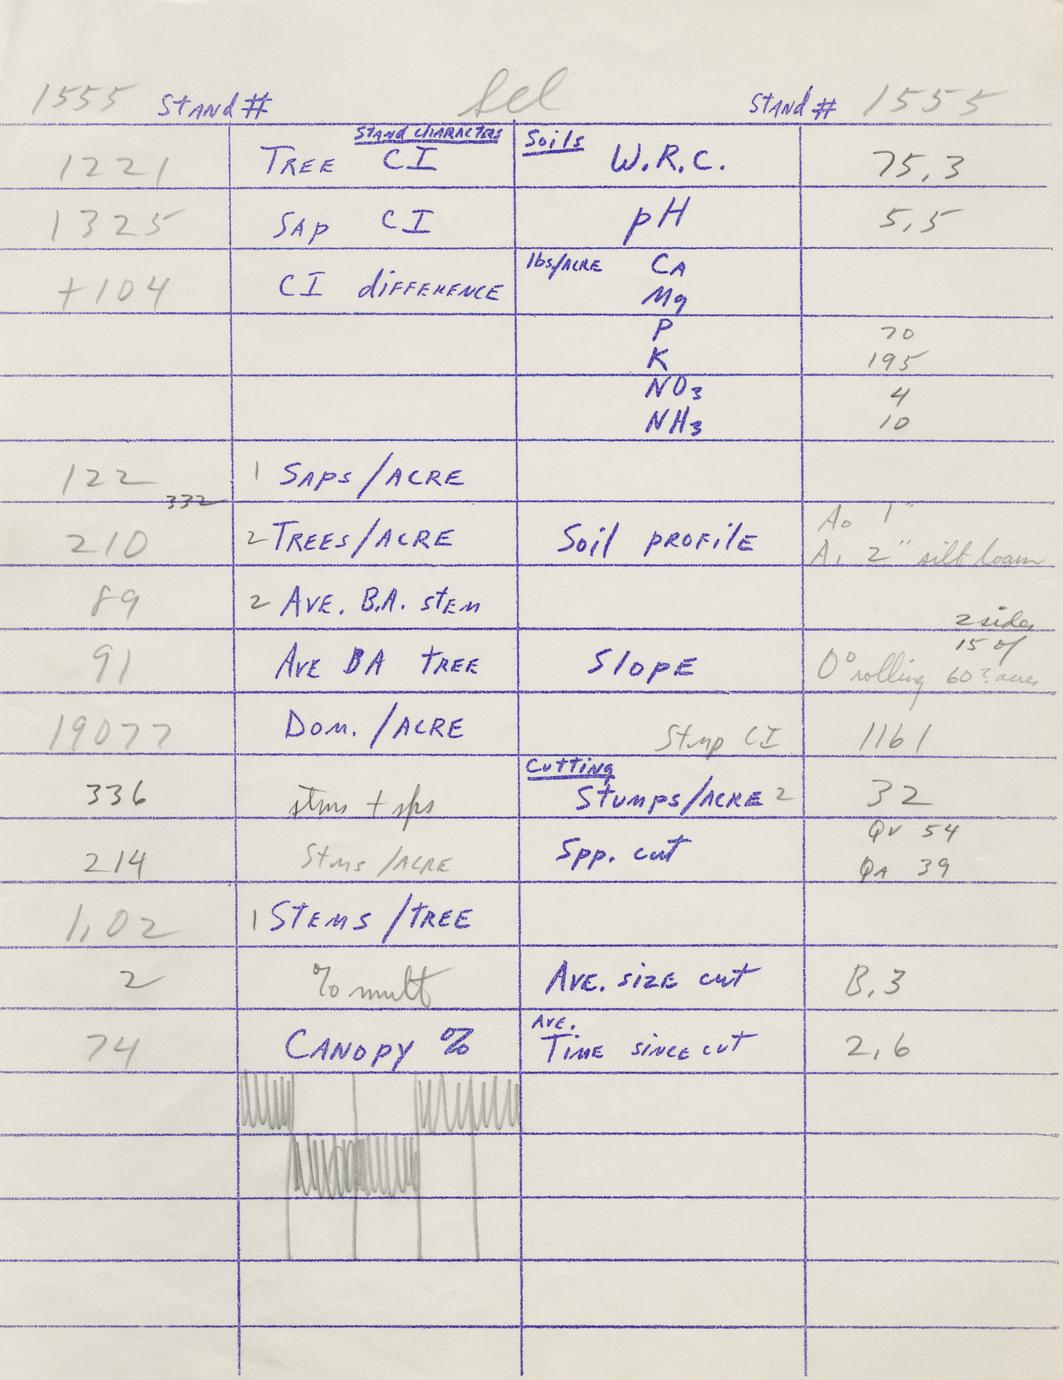 1555 Stand # Sel Stand # 1555
Stand Characters Soils
1221 Tree CI W.R.C. 75,3
1325 Sap CI pH 5,5
+104 CI difference lbs/Acre Ca
Mg
P 70
K 195
NO3 4
NH3 10
122 1 Saps/Acre
332
210 2 Trees/Acre Soil profile Ao 1"
A1 2" silt loam
89 2 Ave. B.A. stem
2 sides
91 Ave BA tree Slope 0° rolling 15 of
60 ? acres
19077 Dom./Acre Stmp CI 1161
Cutting
336 stms + sps Stumps/Acre 2 32
214 Stms/Acre Spp. cut QV 54
QA 39
1,02 1 Stems/tree
2 % mult Ave. size cut B.3
74 Canopy % Ave. Time since cut 2,6